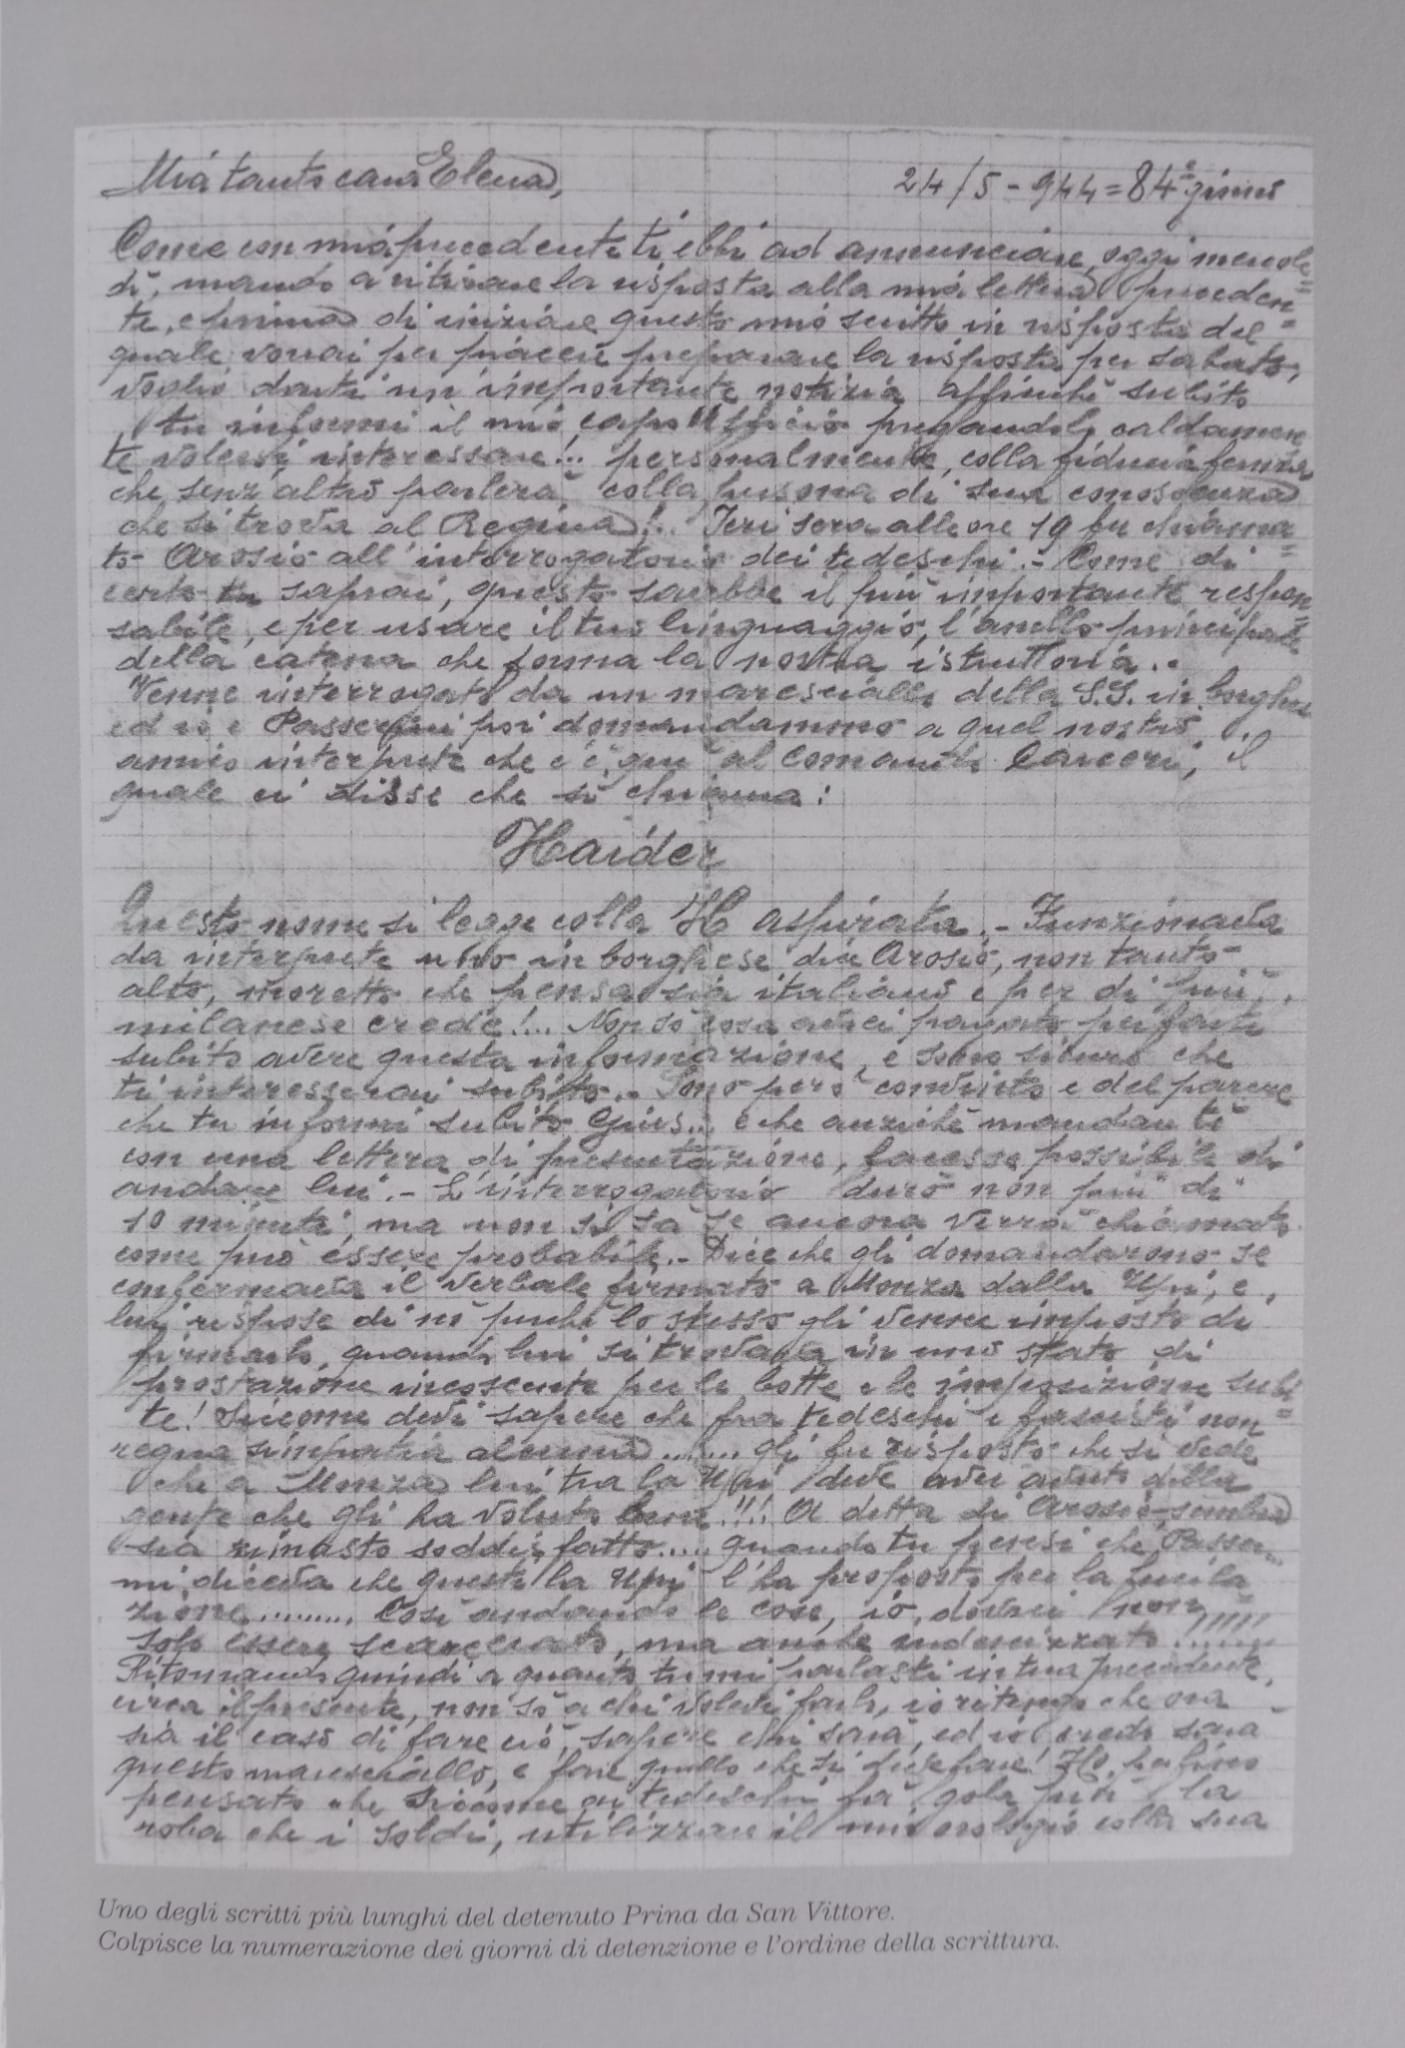 Mia tanto cara Elena,
24/5-944=84° giorno
Come con mia precedente ti ebbi ad annunciare, oggi mercole=
dì, mando a ritirare la risposta alla mia lettera preceden=
te, e prima di iniziare questo mio scritto in risposta del
quale vorrai per piacere preparare la risposta per sabato,
voglio darti un'importante notizia affinchè subito
tu informi il mio capo ufficio pregandolo caldamen=
te volersi interessare... personalmente, colla fiducia ferma
che senz'altro parlerà colla persona di sua conoscenza
che si trova al Regina!.. Ieri sera alle ore 19 fu chiama=
to Arosio all'interrogatorio dei tedeschi.- Come di
certo tu saprai, questo sarebbe il più importante respon=
sabile, e per usare il tuo linguaggio, l'anello principale
della catena che forma la nostra istruttoria..
Venne interrogato da un maresciallo della S.S. in borghese
ed io e Passerini poi domandammo a quel nostro
amico interprete che c'è qui al Comando Carceri, il
quale ci disse che si chiama:
Haider
Questo nome si legge colla H aspirata.- Funzionava
da interprete uno in borghese dice Arosio, non tanto
alto, moretto che pensa sia italiano e per di più,
milanese crede!... Non so cosa avrei pagato per farti
subito avere questa informazione, e sono sicuro che
ti interesserai subito.- Sono però convinto e del parere
che tu informi subito Gius... e che anzichè mandar te
con una lettera di presentazione, facesse possibile di
andare lui.- L'interrogatorio durò non più di
10 minuti, ma non si sa se ancora verrà chiamato
come può essere probabile.- Dice che gli domandarono se
confermava il verbale firmato a Monza dalla Upi, e,
lui rispose di no perchè lo stesso gli venne imposto di
firmarlo, quando lui si trovava in uno stato di
prostrazione incosciente per le botte e le imposizione subi=
te! Siccome devi sapere che fra tedeschi e fascisti non
regna simpatia alcuna....... gli fu risposto che si vede
che a Monza lui tra la Upi deve aver avuto della
gente che gli ha voluto bene.!!! A detta di Arosio, sembra
sia rimasto soddisfatto..... quando tu pensi che Passer...
mi diceva che questi la Upi l'ha proposto per la fucila
zione......... Così andando le cose, io, dovrei non
solo essere scarcerato, ma anche indennizzato!......
Ritornando quindi a quanto tu mi parlasti in tua precedente,
circa il presente, non so a chi volevi farlo, io ritengo che ora
sia il caso di fare ciò, sapere chi sarà, ed io credo sarà
questo maresciallo, e fare quello che si deve fare! Ho perfino
pensato che siccome ai tedeschi fa gola più la
roba che i soldi, utilizzare il mio orologio colla sua
Uno degli scritti più lunghi del detenuto Prina da San Vittore.
Colpisce la numerazione dei giorni di detenzione e l'ordine della scrittura.